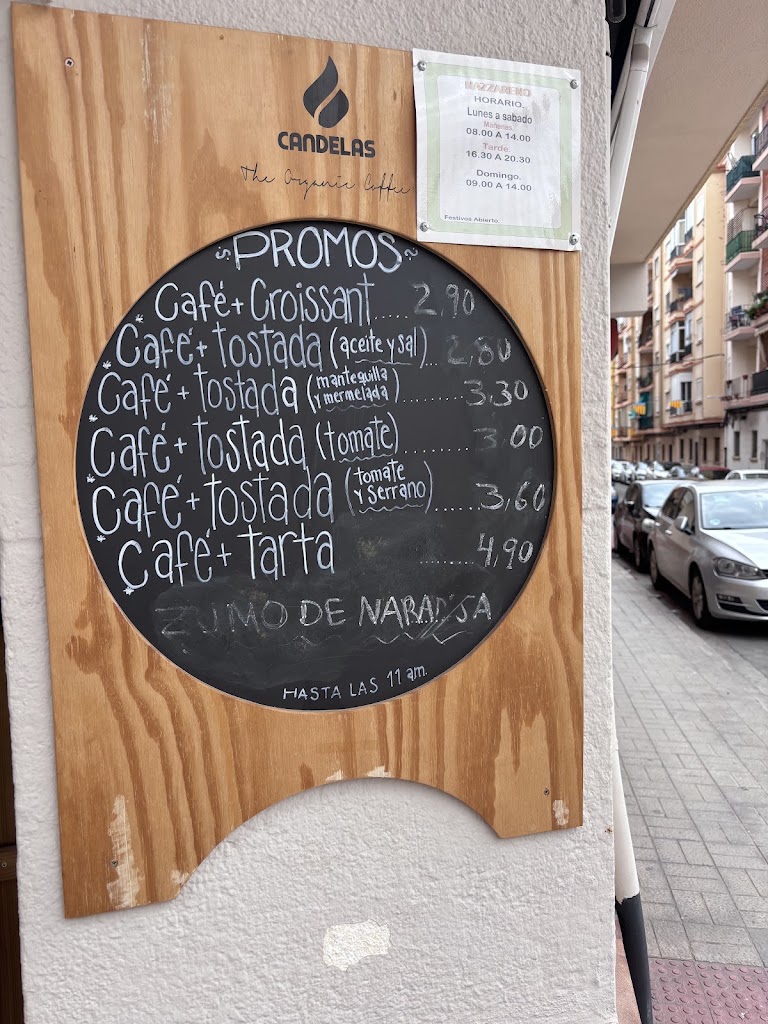 CANDELAS
The Organic Coffee
NAZZARENO
HORARIO.
Lunes a sabado
Mañanas.
08.00 A 14.00
Tarde.
16.30 A 20.30
Domingo.
09.00 A 14.00
Festivos Abierto.
PROMOS
Café + Croissant.... 2,90
Café + Tostada (aceite y sal)... 2,80
Café + Tostada (mantequilla y mermelada)....... 3,30
Café + Tostada (tomate)........ 3,00
Café + Tostada (tomate y serrano)..... 3,60
Café + Tarta ....... 4,90
ZUMO DE NARANJA
HASTA LAS 11 am.